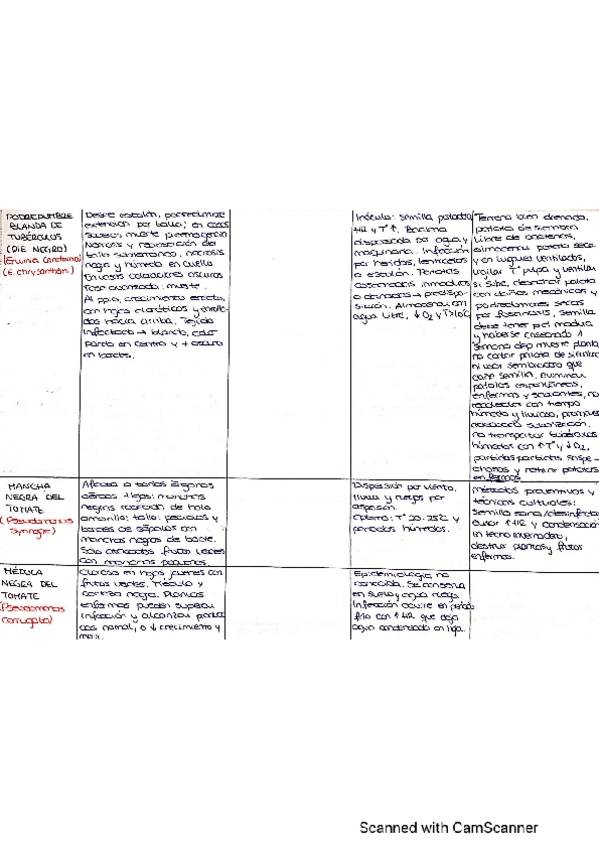 PODREDUMBRE
BLANDA DE
TUBÉRCULOS
(PIE NEGRO)
(Erwinia Carotovora)
(E. chrysanthemi)
Desde estolón, podredumbre
extensión por tallo; en casos
severos, muerte preemergencia
Necrosis y
tallo subterráneo, necrosis
negra y húmeda en cuello
En vasos coloraciones oscuras
Fase avanzada: muerte.
Al ppio, crecimiento erecto,
con hojas cloróticas y enrolla-
das hacia arriba. Tejido
infectado → blando, color
pardo en centro y + oscuro
en bordes.
Inóculo: semilla, patatas
↑HR y Tª↑. Bacteria
dispersada por agua y
maquinaria. Infección
por heridas, lenticelas
o estolón. Patatas
cosechadas inmaduras
o dañadas → predispo-
sición. Almacenar con
agua libre, ↓O₂ y
Terreno bien drenado,
patata de siembra
libre de bacterias,
almacenar patata seca
y en lugares ventilados,
vigilar Tª pulpa y ventilar
si sube, desechar patata
con daños mecánicos y
podredumbres secas
por fusariosis, semilla
debe tener piel madura
y haberse cosechado 1
semana dsp muerte planta,
no cortar patata de siembra
ni usar sembradora que
dañe semilla, eliminar
patatas espontáneas,
enfermas y sobrantes, no
recolectar con tiempo
húmedo y lluvioso, promover
suberización.
no transportar tubérculos
húmedos con ↑Tª y ↓O₂,
partidas sospe-
chosas y retirar patatas
enfermas
MANCHA
NEGRA DEL
TOMATE
(Pseudomonas
Syringae)
Afecta a todos órganos
aéreos → hojas: manchas
negras rodeadas de halo
amarillo; tallo: peciolos y
bordes de sépalos con
manchas negras de borde.
Solo atacados frutos verdes
con manchas pequeñas.
Dispersión por viento,
lluvia y riegos por
aspersión.
Óptimo: Tª 20-25ºC y
periodos húmedos.
métodos preventivos y
técnicas culturales:
Semilla sana/desinfectada
evitar ↑HR y condensación
en techo invernadero,
destruir plantas y frutos
enfermos.
MÉDULA
NEGRA DEL
TOMATE
(Pseudomonas
corrugata)
Clorosis en hojas jóvenes con
frutos verdes. Médula y
corteza negra. Plantas
enfermas pueden superar
infección y alcanzar
normal, o ↓ crecimiento y
Epidemiología no
conocida. Se conserva
en suelo y agua riego
Infección ocurre en periodo
frío con ↑HR que deja
agua condensada en
Scanned with CamScanner